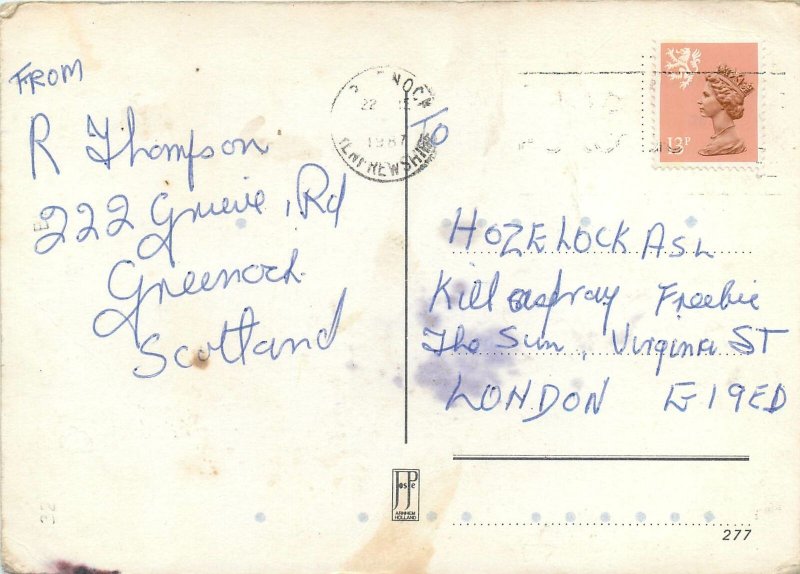 FROM
R Thompson
222 Grieve Rd
Greenock
Scotland
NOCK
22
1987
RENFREWSHIRE
To
13P
HOZELOCK ASL
Killaspray Freebie
The Sun, Virginia ST
LONDON E1 9ED
Joste
ARNHEM
HOLLAND
277
32